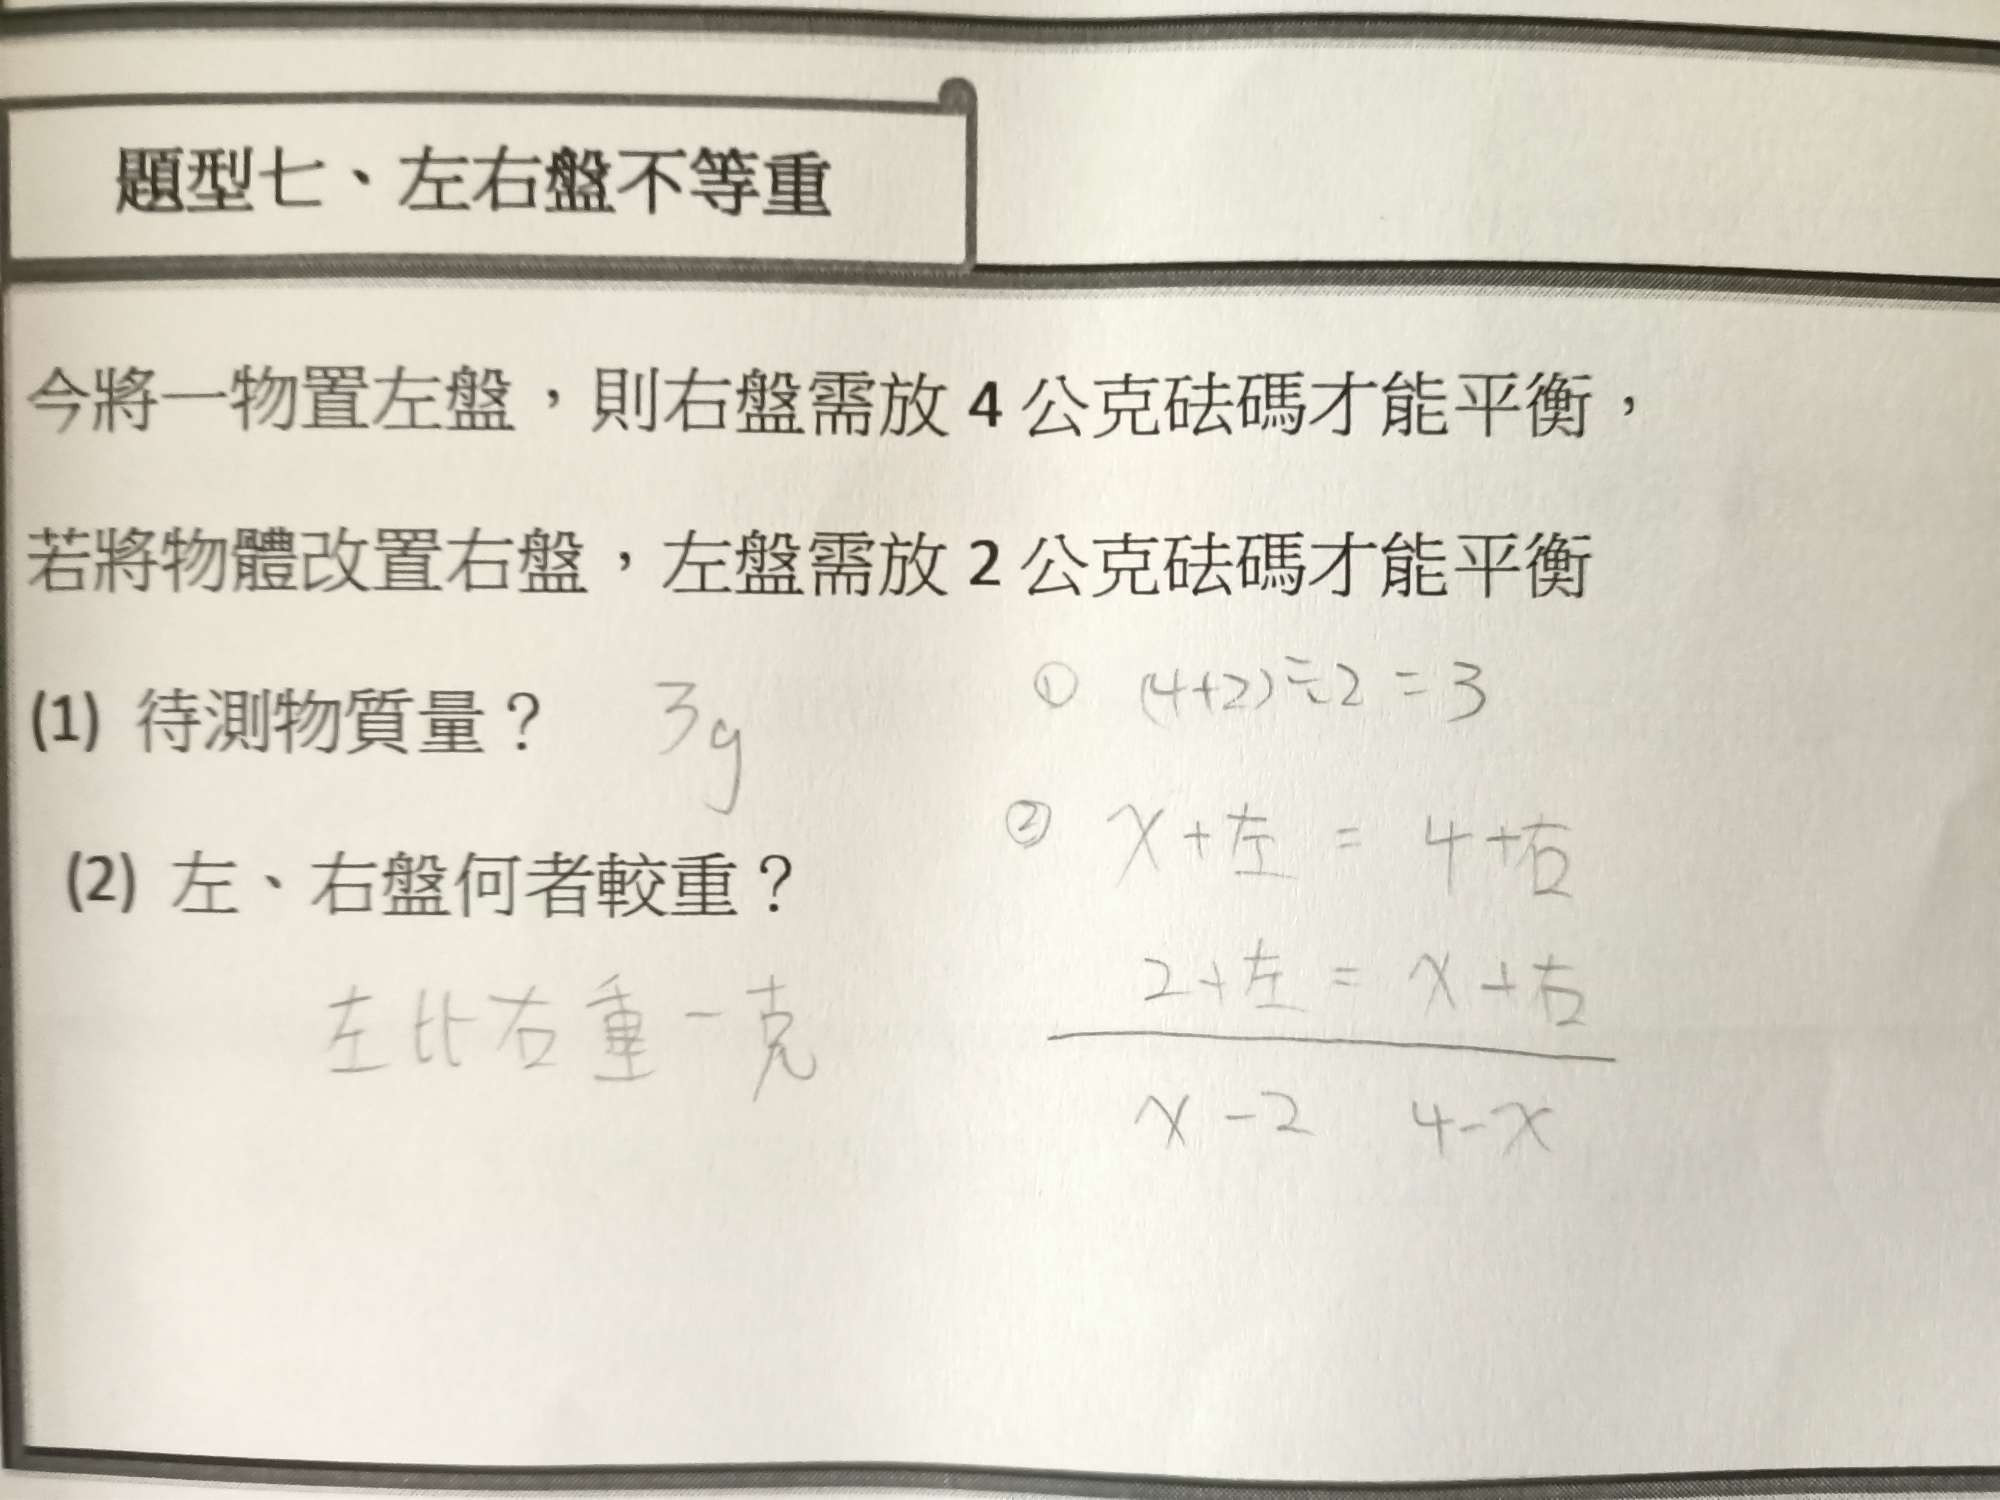 題型七、左右盤不等重
今將一物置左盤，則右盤需放 4 公克砝碼才能平衡，
若將物體改置右盤，左盤需放 2 公克砝碼才能平衡
(1) 待測物質量？ 3g
① (4+2)÷2=3
(2) 左、右盤何者較重？
左比右重一克
② x+左=4+右
2+左=x+右
x-2 4-x